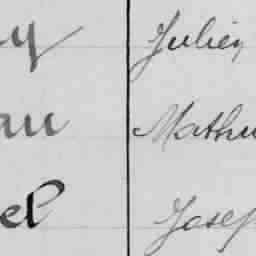 y Julien
au Mathu
el Josep